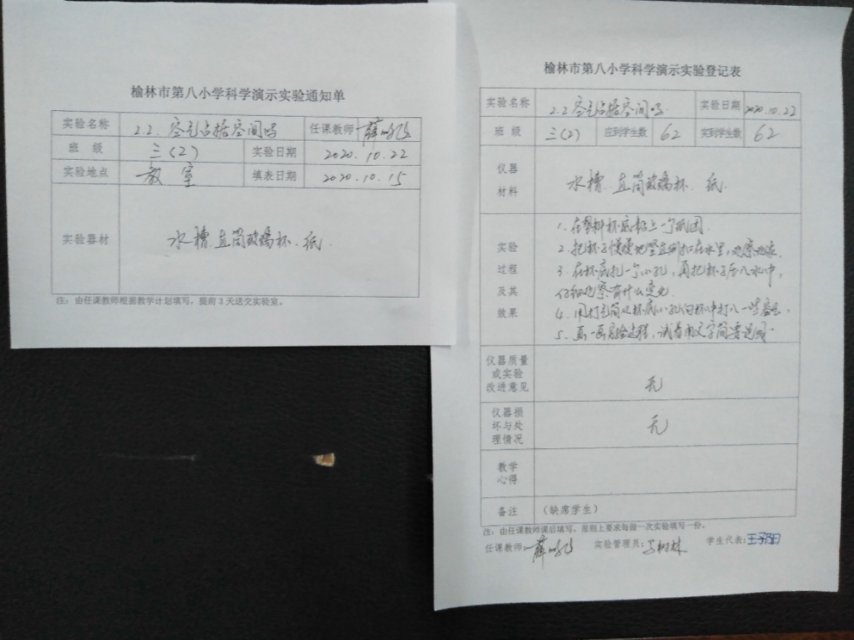 榆林市第八小学科学演示实验通知单
实验名称 2.2. 空气占据空间吗 任课教师 薛
班 级 三(2) 实验日期 2020.10.22
实验地点 教室 填表日期 2020.10.15
实验器材 水槽.直筒玻璃杯.纸.
注：由任课教师根据教学计划填写，提前3天送交实验室。
榆林市第八小学科学演示实验登记表
实验名称 2.2 空气占据空间吗 实验日期 2020.10.22
班 级 三(2) 应到学生数 62 实到学生数 62
仪器
材料
水槽.直筒玻璃杯.纸.
实验
过程
及其
效果
1. 在塑料杯底粘上一个纸团.
2. 把杯子慢慢地竖直倒扣在水里,观察
3. 在杯底扎一个小孔,再把杯子压入水中,
仔细观察有什么变化.
4. 用打气筒从杯底小孔向杯中打入一些空气.
5. 画一画实验过程,试着用文字简要说明.
仪器质量
或实验
改进意见
无
仪器损
坏与处
理情况
无
教学
心得
备注 （缺席学生）
注：由任课教师课后填写，原则上要求每做一次实验填写一份。
任课教师: 薛 实验管理员: 学生代表: 王